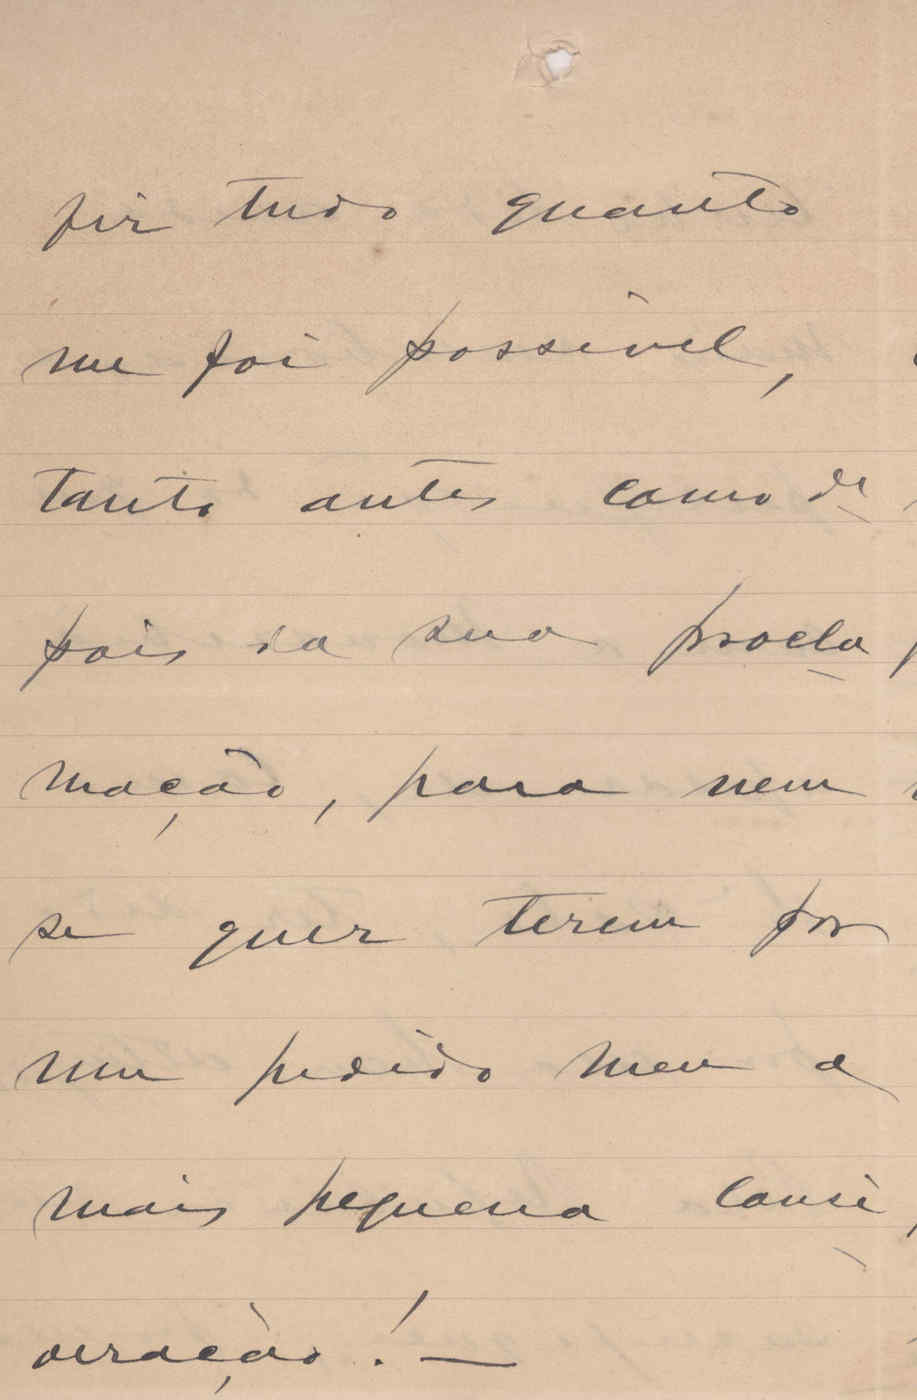 fiz tudo quanto
me foi possivel,
tanto antes como de
pois da sua procla
mação, para nem
se quer terem por
um pedido meu a
mais pequena consi
deração! —